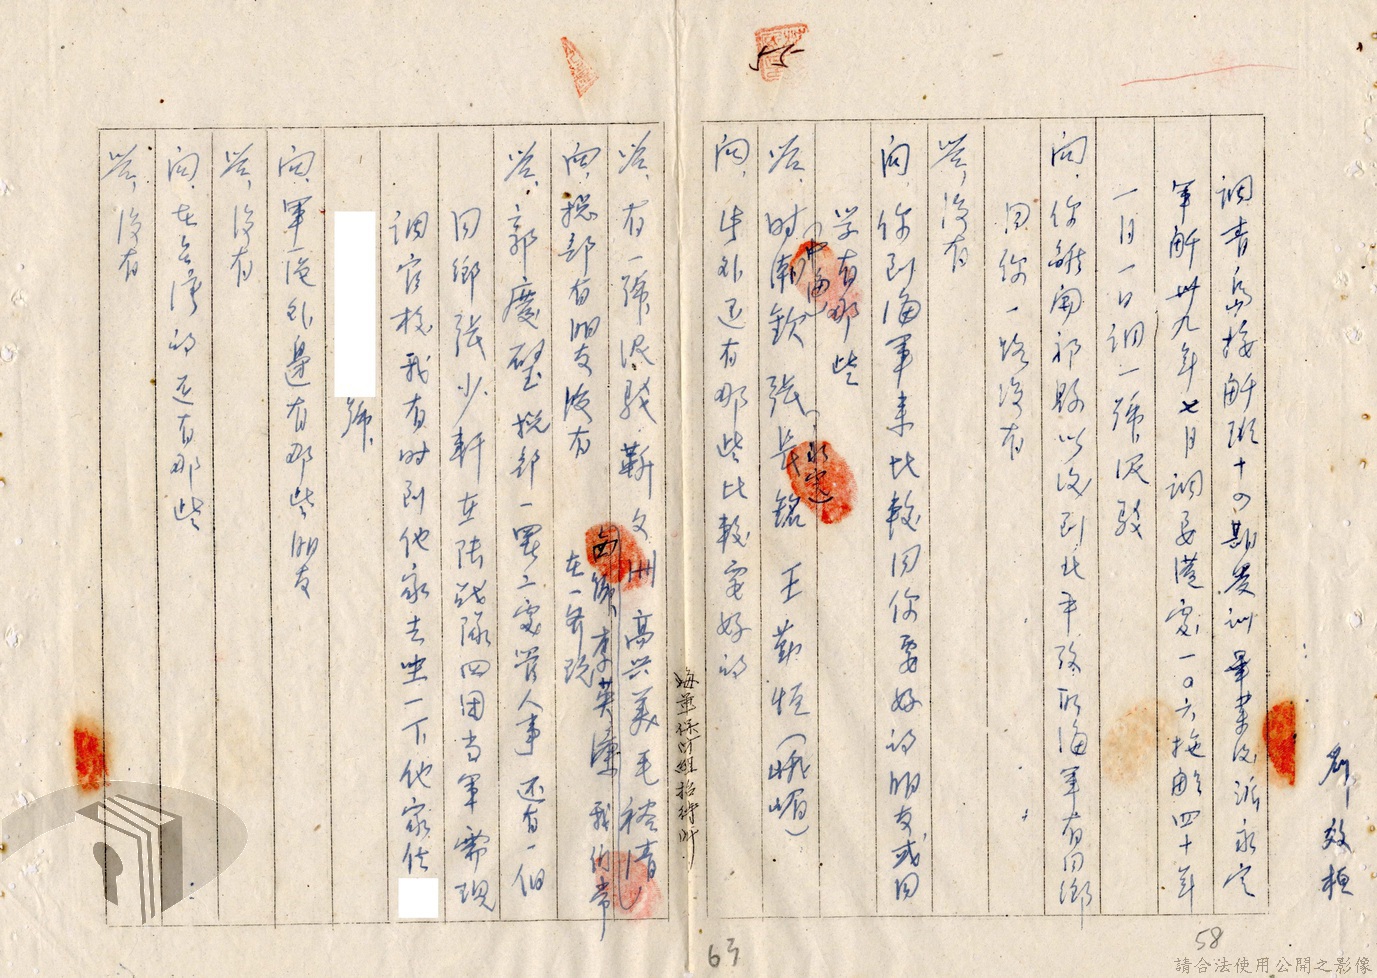 55
調青島接艦班十四期受訓畢業後派永定
軍艦卅九年七月調左營處一〇六拖船四十年
一月一日調一號泥駁
問、你離開祁縣以後到北平考取海軍有同鄉
同你一路沒有
答、沒有
問、你到海軍來比較同你要好的朋友或同
學有那些
答、时南欽(中海)張長銘(永定)王勤恒(峨嵋)
問、此外还有那些比較更好的
海軍保防組招待所
答、有一號泥駁、靳文洲高兴美毛裕青
西餘、李英漢我们常
在一爷玩
問、總部有朋友沒有
答、郭慶壁總部一署二處管人事还有一個
同鄉張少軒在陸战隊四团当軍需現
調官校我有时到他家去坐一下他家住
號、
問、軍區外邊有那些朋友
答、沒有
問、在台湾的还有那些
答、沒有
效桓
63
58
請合法使用公開之影像